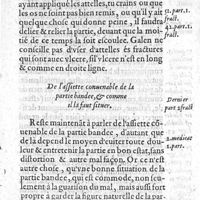 ayant appliqué les attelles, tu crains ou que
les os ne soint pas bien tenus, ou qu'il y ait
quelque chose qui donne peine, il faudra
delier & relier la partie, deuant que la moi-
tié de ce temps là soit escoulée. Galen ne
conseille pas d'vser d'attelles és fractures
qui sont auec vlcere, si l'vlcere n'est en long
& comme en droite ligne.
De l'assiette conuenable de la
partie bandee, & comme
il la faut situer.
Reste maintenāt à parler de l'assiette cō-
uenable de la partie bandee, d'autant que
de là depend le moyen d'euiter toute dou-
leur & entretenir la partie en bon estat, sans
distortion & autre mal façon. Or ce n'est
autre chose, qu'vne bonne situation de la
partie bandee, qui est commode, non seu-
lement à la guaison du mal, mais aussi fort
propre à garder la figure naturelle de la par
52. part. 1.
fract.
31. part. 1.
fract.
Dernier
part. 2. fract.
2. medicat
2. part.